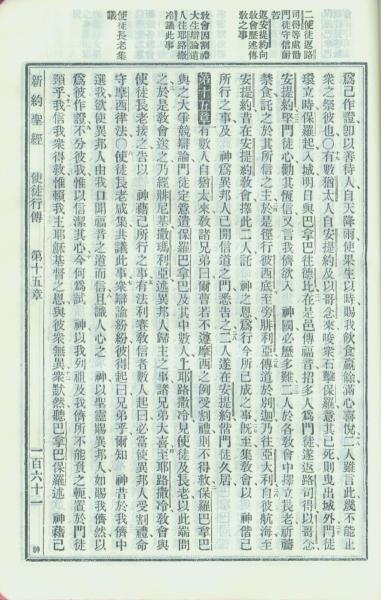 二使徒返路
司得等處勸
門徒守信耐
苦
返安提約向
教會歷述傳
敎之事
敎會因割禮
大生辯論遣
人往耶路撒
冷議此事
使徒長老集
議
爲己作證卽以善待人自天降雨使果生以時賜我飮食贏餘滿心喜悅二人雖言此幾不能止
衆之祭彼也○有數猶太人自安提約及以哥念來唆衆石擊保羅意其已死則曳出城外門徒
環立時保羅起入城明日與巴拿巴往德比在是邑傳福音招多人爲門徒遂返路司得以哥念
安提約堅門徒心勸其恆信又言我儕欲入　神國必歷多難二人於各敎會中擇立長老祈禱
禁食託之於其所信之主於是徑行彼西底至旁腓利亞傳道於別迦乃往亞大利自彼航海至
安提約昔在安提約敎會擇此二人託　神之恩爲行今所已成之事旣至集敎會以　神偕己
所行之事及　神爲異邦人已開信道之門悉告之二人遂在安提約偕門徒久居
第十五章　有數人自猶太來敎諸兄弟曰爾曹若不遵摩西之例受割禮則不得救保羅巴拿巴
與之大爭競辯論門徒定意遣保羅巴拿巴及其中數人上耶路撒冷見使徒及長老以此端問
之於是敎會送之乃經腓尼基撒瑪利亞述異邦人歸主之事諸兄弟大喜至耶路撒冷敎會與
使徒長老接之告以　神藉己所行之事有法利賽敎信者數人起曰必當使異邦人受割禮命
守摩西律法○使徒長老咸集共議此事衆辯論紛紛彼得起曰兄弟乎爾知　神昔於我儕中
選我欲使異邦人由我口聞福音之道而信且識人心之　神以聖靈賜異邦人如賜我儕然以
爲彼作證不分彼我惟以信潔其心今何爲試　神以我列祖及我儕所不能負之軛置於門徒
頸乎我信我衆得救惟賴我主耶穌基督之恩與彼衆無異衆默然聽巴拿巴保羅述　神藉己
新約聖經　使徒行傳　第十五章　一百六十一